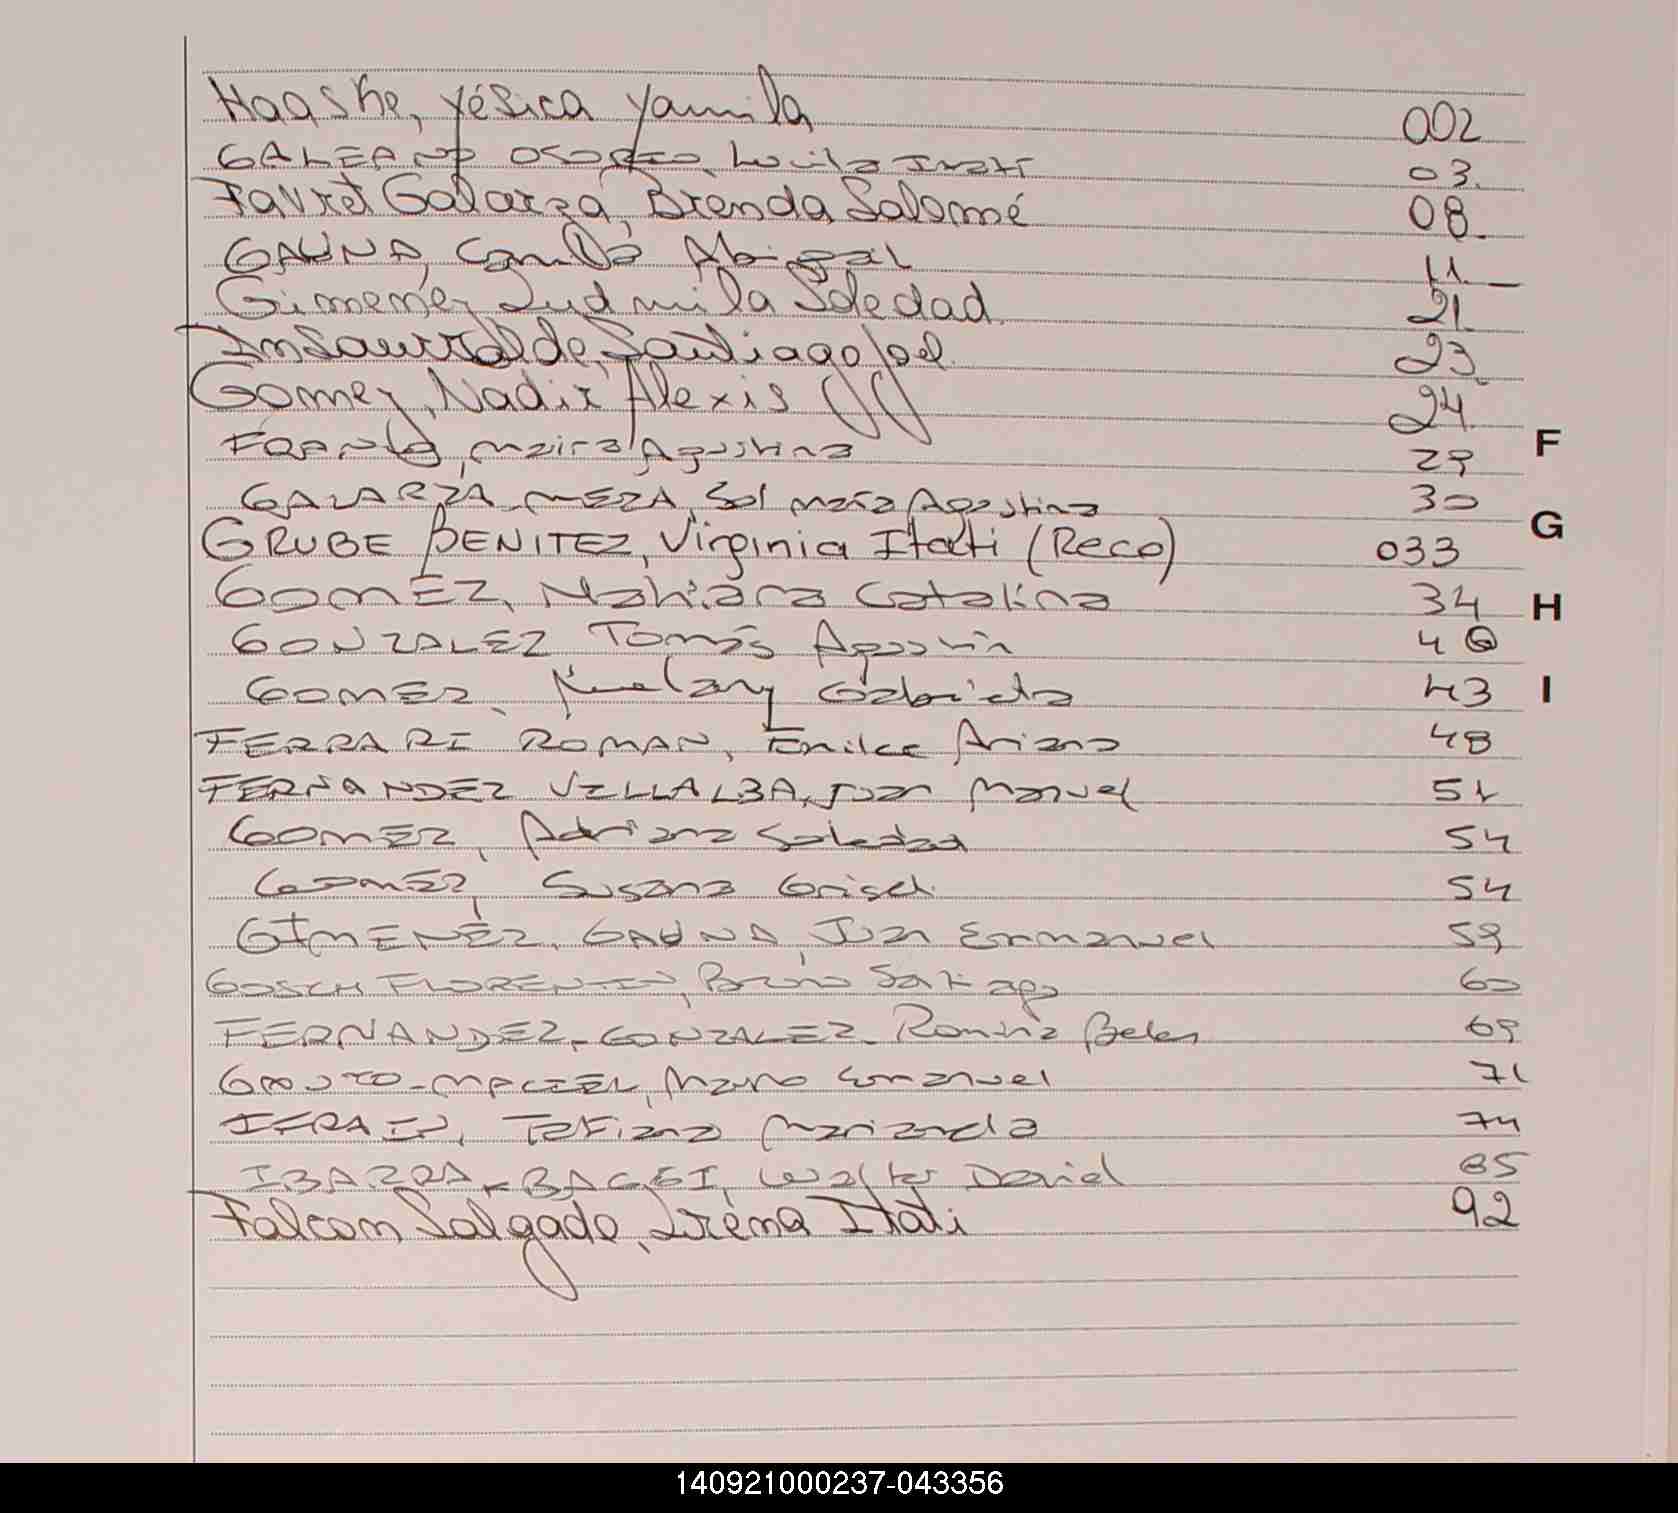 Haaske, Yésica Yamila 002
GALEANO OSORIO, Lucila Itati 03.
Favret Galarza, Brenda Salomé 08
GAUNA, Camila Abigail 11
Gimenez Ludmila Soledad 21
Insaurralde, Santiago Joel 23
Gomez, Nadir Alexis 24
FRANCO, Maira Agustina 29
GALARZA MEZA, Sol María Agostina 30
GRUBE BENITEZ, Virginia Itatí (Reco) 033
GOMEZ, Nahiara Catalina 34
GONZALEZ Tomás Agustín 40
GOMEZ, Gabriela 43
FERRARI ROMAN, Emilce Ariana 48
FERNANDEZ VILLALBA, Juan Manuel 51
GOMEZ, Adriana Soledad 54
GOMEZ, Susana Grisel 54
GIMENEZ, GAUNA, Juan Emmanuel 59
GOSCH FLORENTIN, Bruno Santiago 60
FERNANDEZ-GONZALEZ Romina Belen 69
MACIEL, Mario Emanuel 71
IFRAIN, Tatiana Marianela 74
IBARRA-BAGGI, Walter David 85
Falcon Salgado, Irena Itati 92
F
G
H
I
140921000237-043356